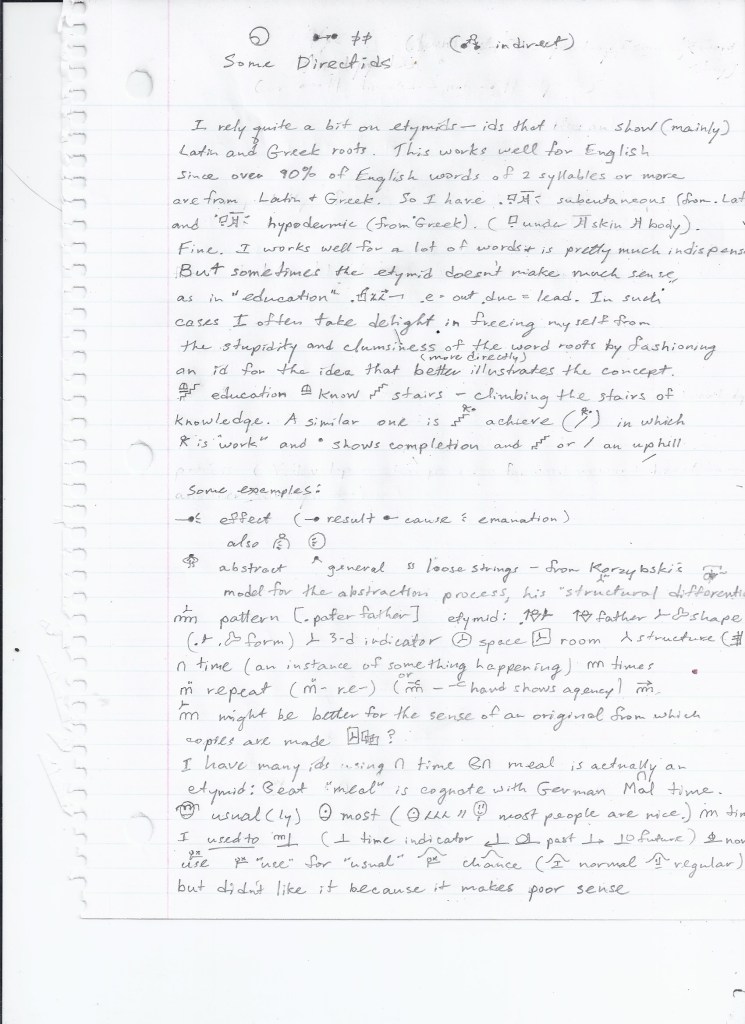 ( indirect)
Some Directids
I rely quite a bit on etymids — ids that show (mainly)
Latin and Greek roots. This works well for English
since over 90% of English words of 2 syllables or more
are from Latin + Greek. So I have subcutaneous (from Lat
and hypodermic (from Greek). ( under skin body).
Fine. I works well for a lot of words + is pretty much indispens
But sometimes the etymid doesn't make much sense,
as in "education" . e = out, duc = lead. In such
cases I often take delight in freeing myself from
the stupidity and clumsiness of the word roots by fashioning
an id for the idea that (more directly) better illustrates the concept.
education know stairs – climbing the stairs of
knowledge. A similar one is achieve ( ) in which
is "work" and • shows completion and or / an uphill
Some examples:
effect ( result cause emanation)
also
abstract general loose strings – from Korzybski's
model for the abstraction process, his "structural differenti
pattern [. pater father] etymid: father shape
( form) 3-d indicator space room structure (#
∩ time (an instance of something happening) m times
m̈ repeat (m̈ - re-) (or – hand shows agency)
might be better for the sense of an original from which
copies are made ?
I have many ids using ∩ time meal is actually an
etymid: Beat "meal" is cognate with German Mal time.
usual (ly) most ( most people are nice.) m tim
I used to ( ⊥ time indicator past future) now
use "use" for "usual" chance ( normal regular)
but didn't like it because it makes poor sense